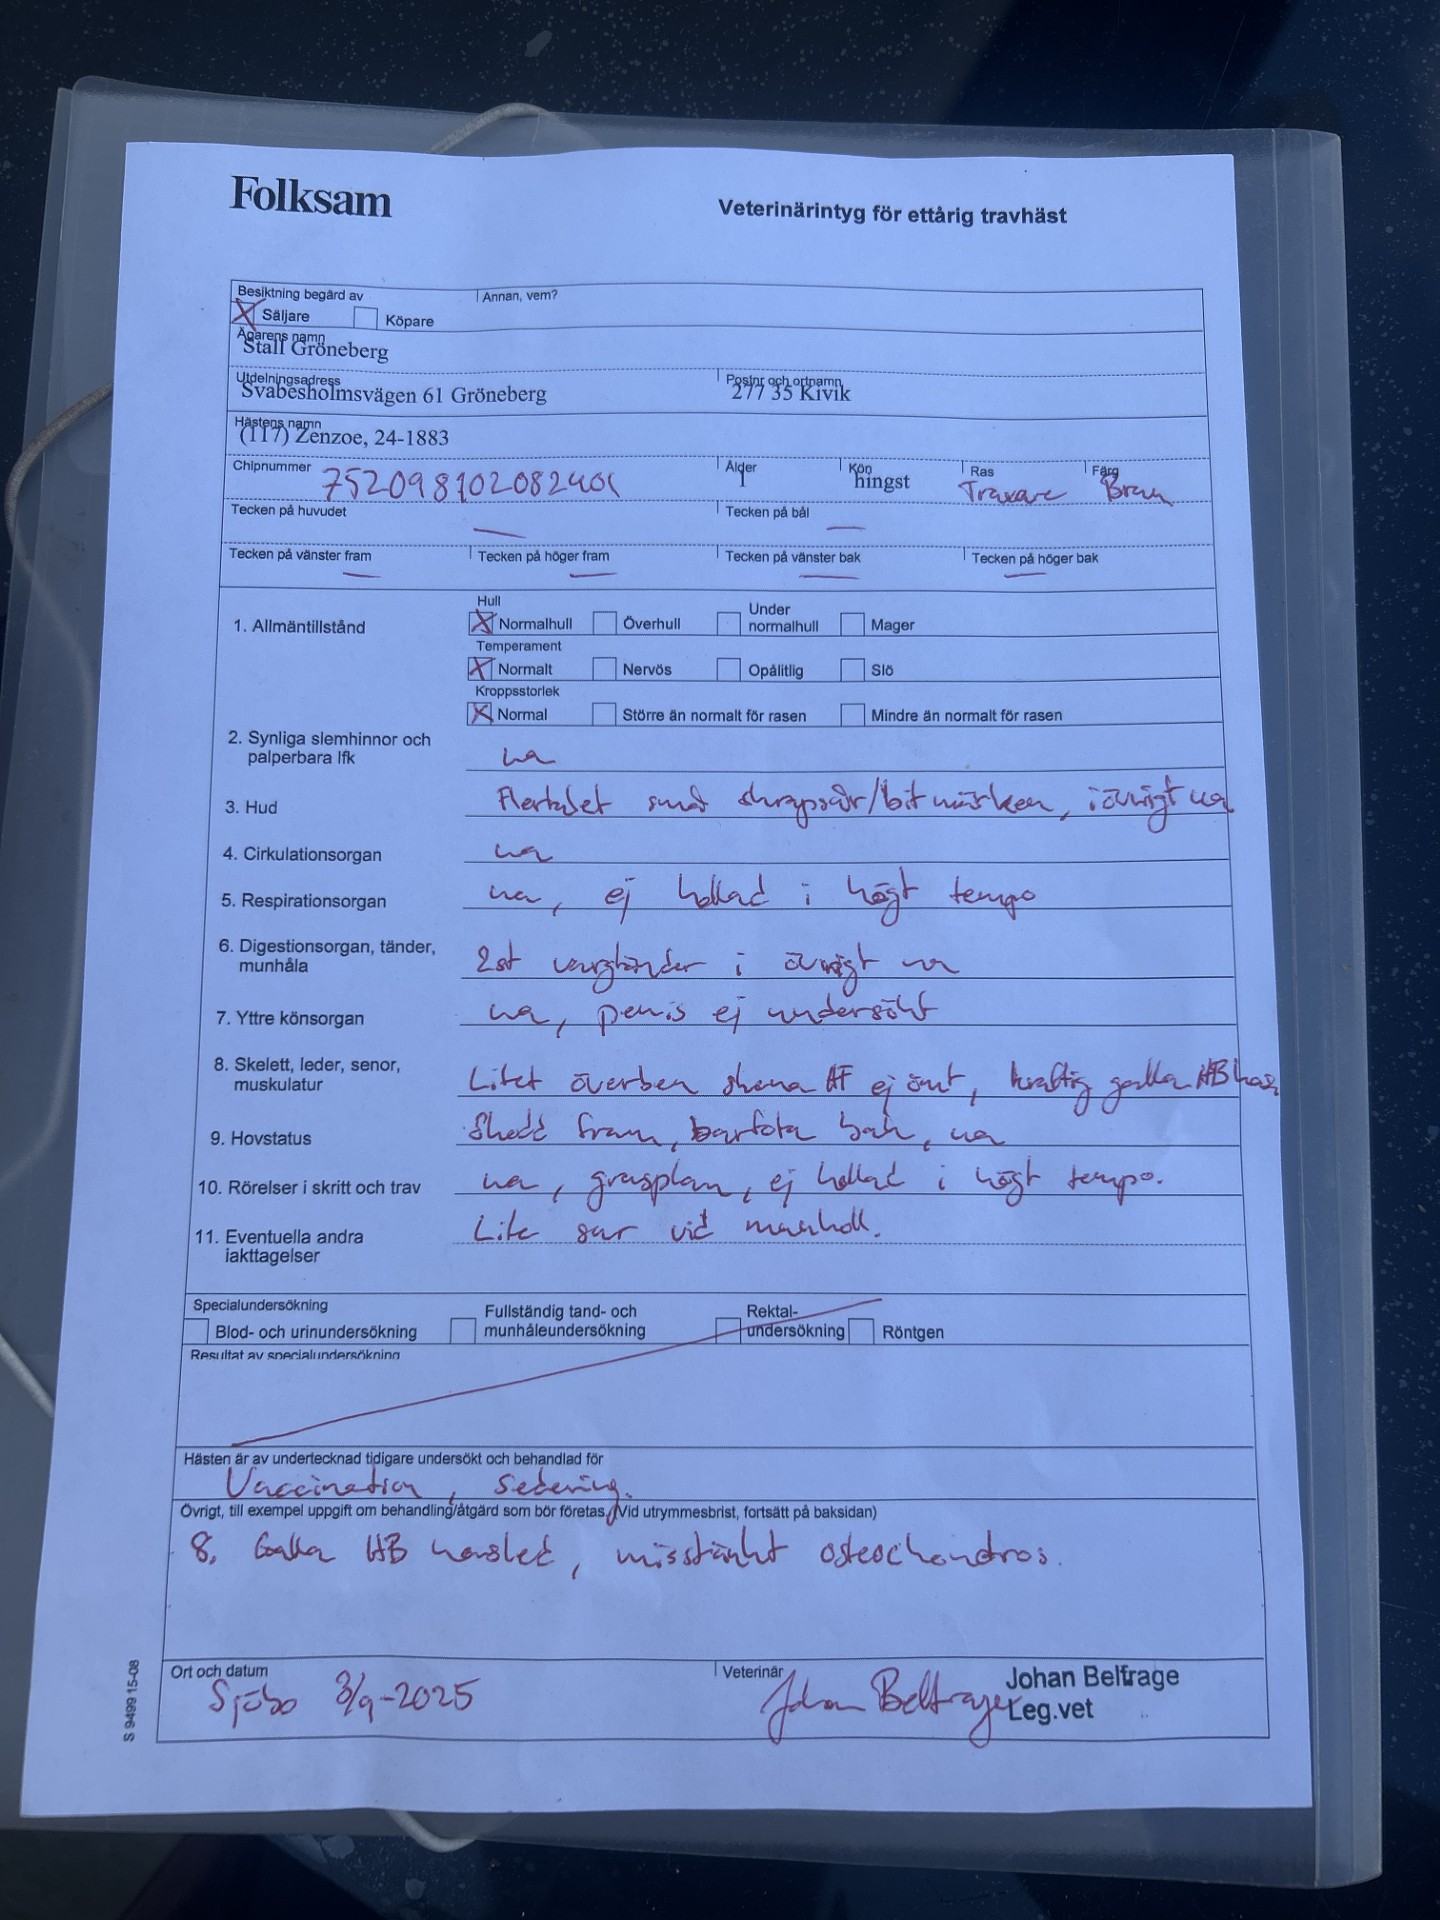 Folksam
Veterinärintyg för ettårig travhäst
Besiktning begärd av
Annan, vem?
Säljare
Köpare
Ägarens namn
Stall Gröneberg
Utdelningsadress
Postnr och ortnamn
Svabesholmsvägen 61 Gröneberg
277 35 Kivik
Hästens namn
(117) Zenzoe, 24-1883
Chipnummer
Ålder
Kön
Ras
Färg
1
hingst
Travare
Brun
Tecken på huvudet
Tecken på bål
Tecken på vänster fram
Tecken på höger fram
Tecken på vänster bak
Tecken på höger bak
1. Allmäntillstånd
Hull
Normalhull
Överhull
Under
normalhull
Mager
Temperament
Normalt
Nervös
Opålitlig
Slö
Kroppsstorlek
Normal
Större än normalt för rasen
Mindre än normalt för rasen
2. Synliga slemhinnor och
palperbara lfk
ua
3. Hud
Flertalet små skrapsår/bitmärken, i övrigt ua
4. Cirkulationsorgan
ua
5. Respirationsorgan
ua, ej kollad i högt tempo
6. Digestionsorgan, tänder,
munhåla
2st vargtänder i övrigt ua
7. Yttre könsorgan
ua, penis ej undersökt
8. Skelett, leder, senor,
muskulatur
Litet överben skena HF ej ömt, kraftig galla HB has
9. Hovstatus
Skodd fram, barfota bak, ua
10. Rörelser i skritt och trav
ua, grusplan, ej kollad i högt tempo.
11. Eventuella andra
iakttagelser
Lite sur vid munkoll.
Specialundersökning
Blod- och urinundersökning
Fullständig tand- och
munhåleundersökning
Rektal-
undersökning
Röntgen
Resultat av specialundersökning
Hästen är av undertecknad tidigare undersökt och behandlad för
Vaccination, sedering.
Övrigt, till exempel uppgift om behandling/åtgärd som bör företas. (Vid utrymmesbrist, fortsätt på baksidan)
8. Galla HB hasled, misstänkt osteochondros.
Ort och datum
Sjöbo 3/9-2025
Veterinär
Johan Belfrage
Johan Belfrage
Leg.vet
S 9499 15-08